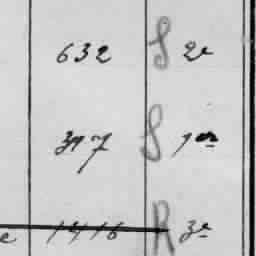 632 S 2e
347 S 1er
e 1416 R 3e